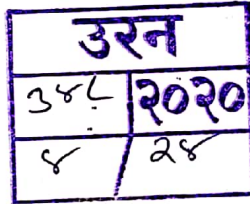 उरन
३४८ २०२०
४ / २४